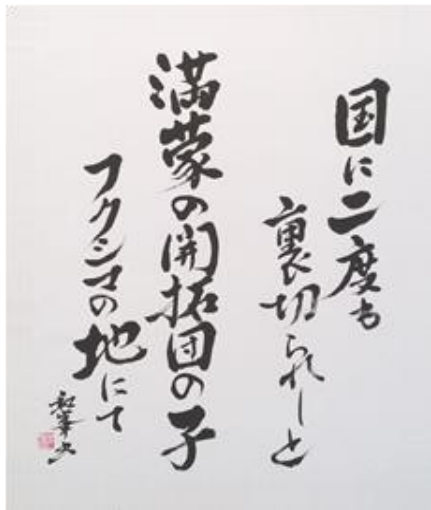 国に二度も
裏切られしと
満蒙の開拓団の子
フクシマの地にて